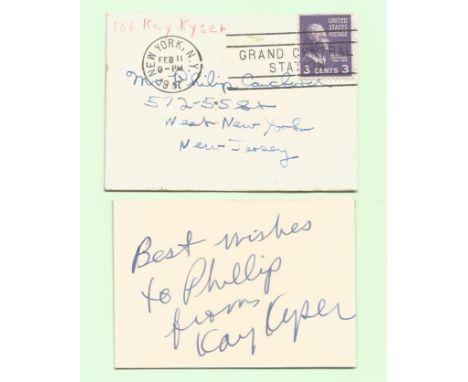 166 Kay Kyser
NEW YORK, N.Y.
FEB 11
9-PM
UNITED STATES POSTAGE
3 CENTS 3
GRAND CENTRAL
Mr. Philip
572-55 St
West New York
New Jersey
Best wishes
to Phillip
from
Kay Kyser